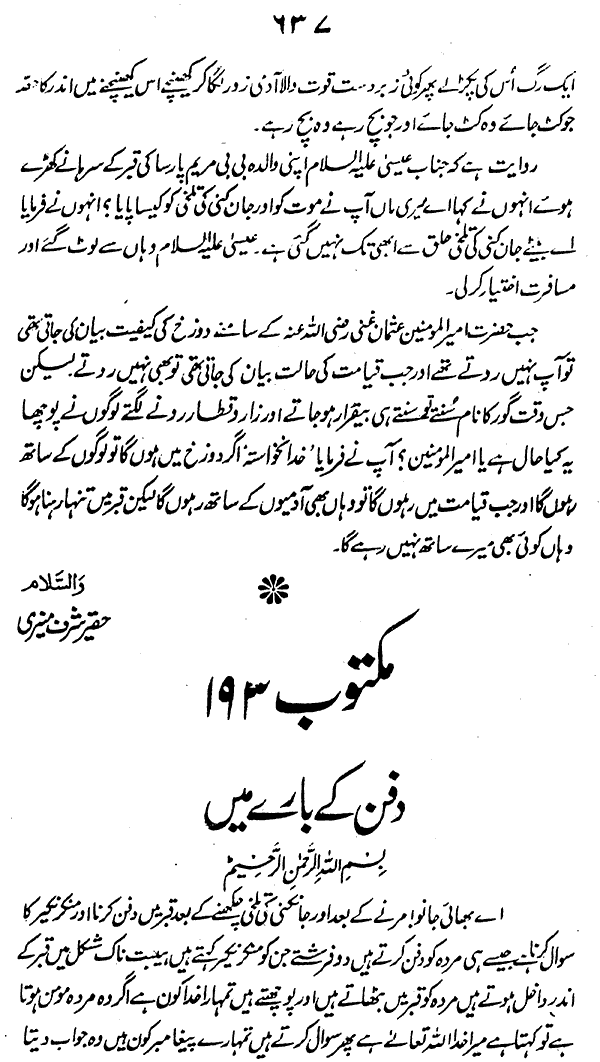 ۶۳۷
ایک رگ اُس کی پکڑلے پھر کوئی زبردست قوت والا آدمی زور لگا کر کھینچے اس کھینچنے میں اندر کا حصّہ
جو کٹ جائے وہ کٹ جائے اور جو بچ رہے وہ بچ رہے۔
روایت ہے کہ جناب عیسیٰ علیہ السلام اپنی والدہ بی بی مریم پارسا کی قبر کے سرہانے کھڑے
ہوئے انہوں نے کہا اے میری ماں آپ نے موت کو اور جان کنی کی تلخی کو کیسا پایا؟ انہوں نے فرمایا
اے بیٹے جان کنی کی تلخی حلق سے ابھی تک نہیں گئی ہے۔ عیسیٰ علیہ السلام وہاں سے لوٹ گئے اور
مسافرت اختیار کرلی۔
جب حضرت امیر المومنین عثمان غنی رضی اللہ عنہ کے سامنے دوزخ کی کیفیت بیان کی جاتی تھی
تو آپ نہیں روتے تھے اور جب قیامت کی حالت بیان کی جاتی تھی تو بھی نہیں روتے۔ لیکن
جس وقت گور کا نام سُنتے تو سنتے ہی بیقرار ہو جاتے اور زار و قطار رونے لگتے لوگوں نے پوچھا
یہ کیا حال ہے یا امیر المومنین؟ آپ نے فرمایا 'خدانخواستہ' اگر دوزخ میں ہوں گا تو لوگوں کے ساتھ
رہوں گا اور جب قیامت میں رہوں گا تو وہاں بھی آدمیوں کے ساتھ رہوں گا لیکن قبر میں تنہا رہنا ہوگا
وہاں کوئی بھی میرے ساتھ نہیں رہے گا۔
والسّلام
حقیر شرف منیری
مکتوب ۱۹۳
دفن کے بارے میں
بِسْمِ اللّٰہِ الرَّحْمٰنِ الرَّحِیْمِ
اے بھائی جانو! مرنے کے بعد اور جانکنی کی تلخی چکھنے کے بعد قبر میں دفن کرنا اور منکر نکیر کا
سوال کرنا ہے جیسے ہی مردہ کو دفن کرتے ہیں دو فرشتے جن کو منکر نکیر کہتے ہیں ہیبت ناک شکل میں قبر کے
اندر داخل ہوتے ہیں مردہ کو قبر میں بٹھاتے ہیں اور پوچھتے ہیں تمہارا خدا کون ہے اگر وہ مردہ مؤمن ہوتا
ہے تو کہتا ہے میرا خدا اللہ تعالےٰ ہے پھر سوال کرتے ہیں تمہارے پیغامبر کون ہیں وہ جواب دیتا